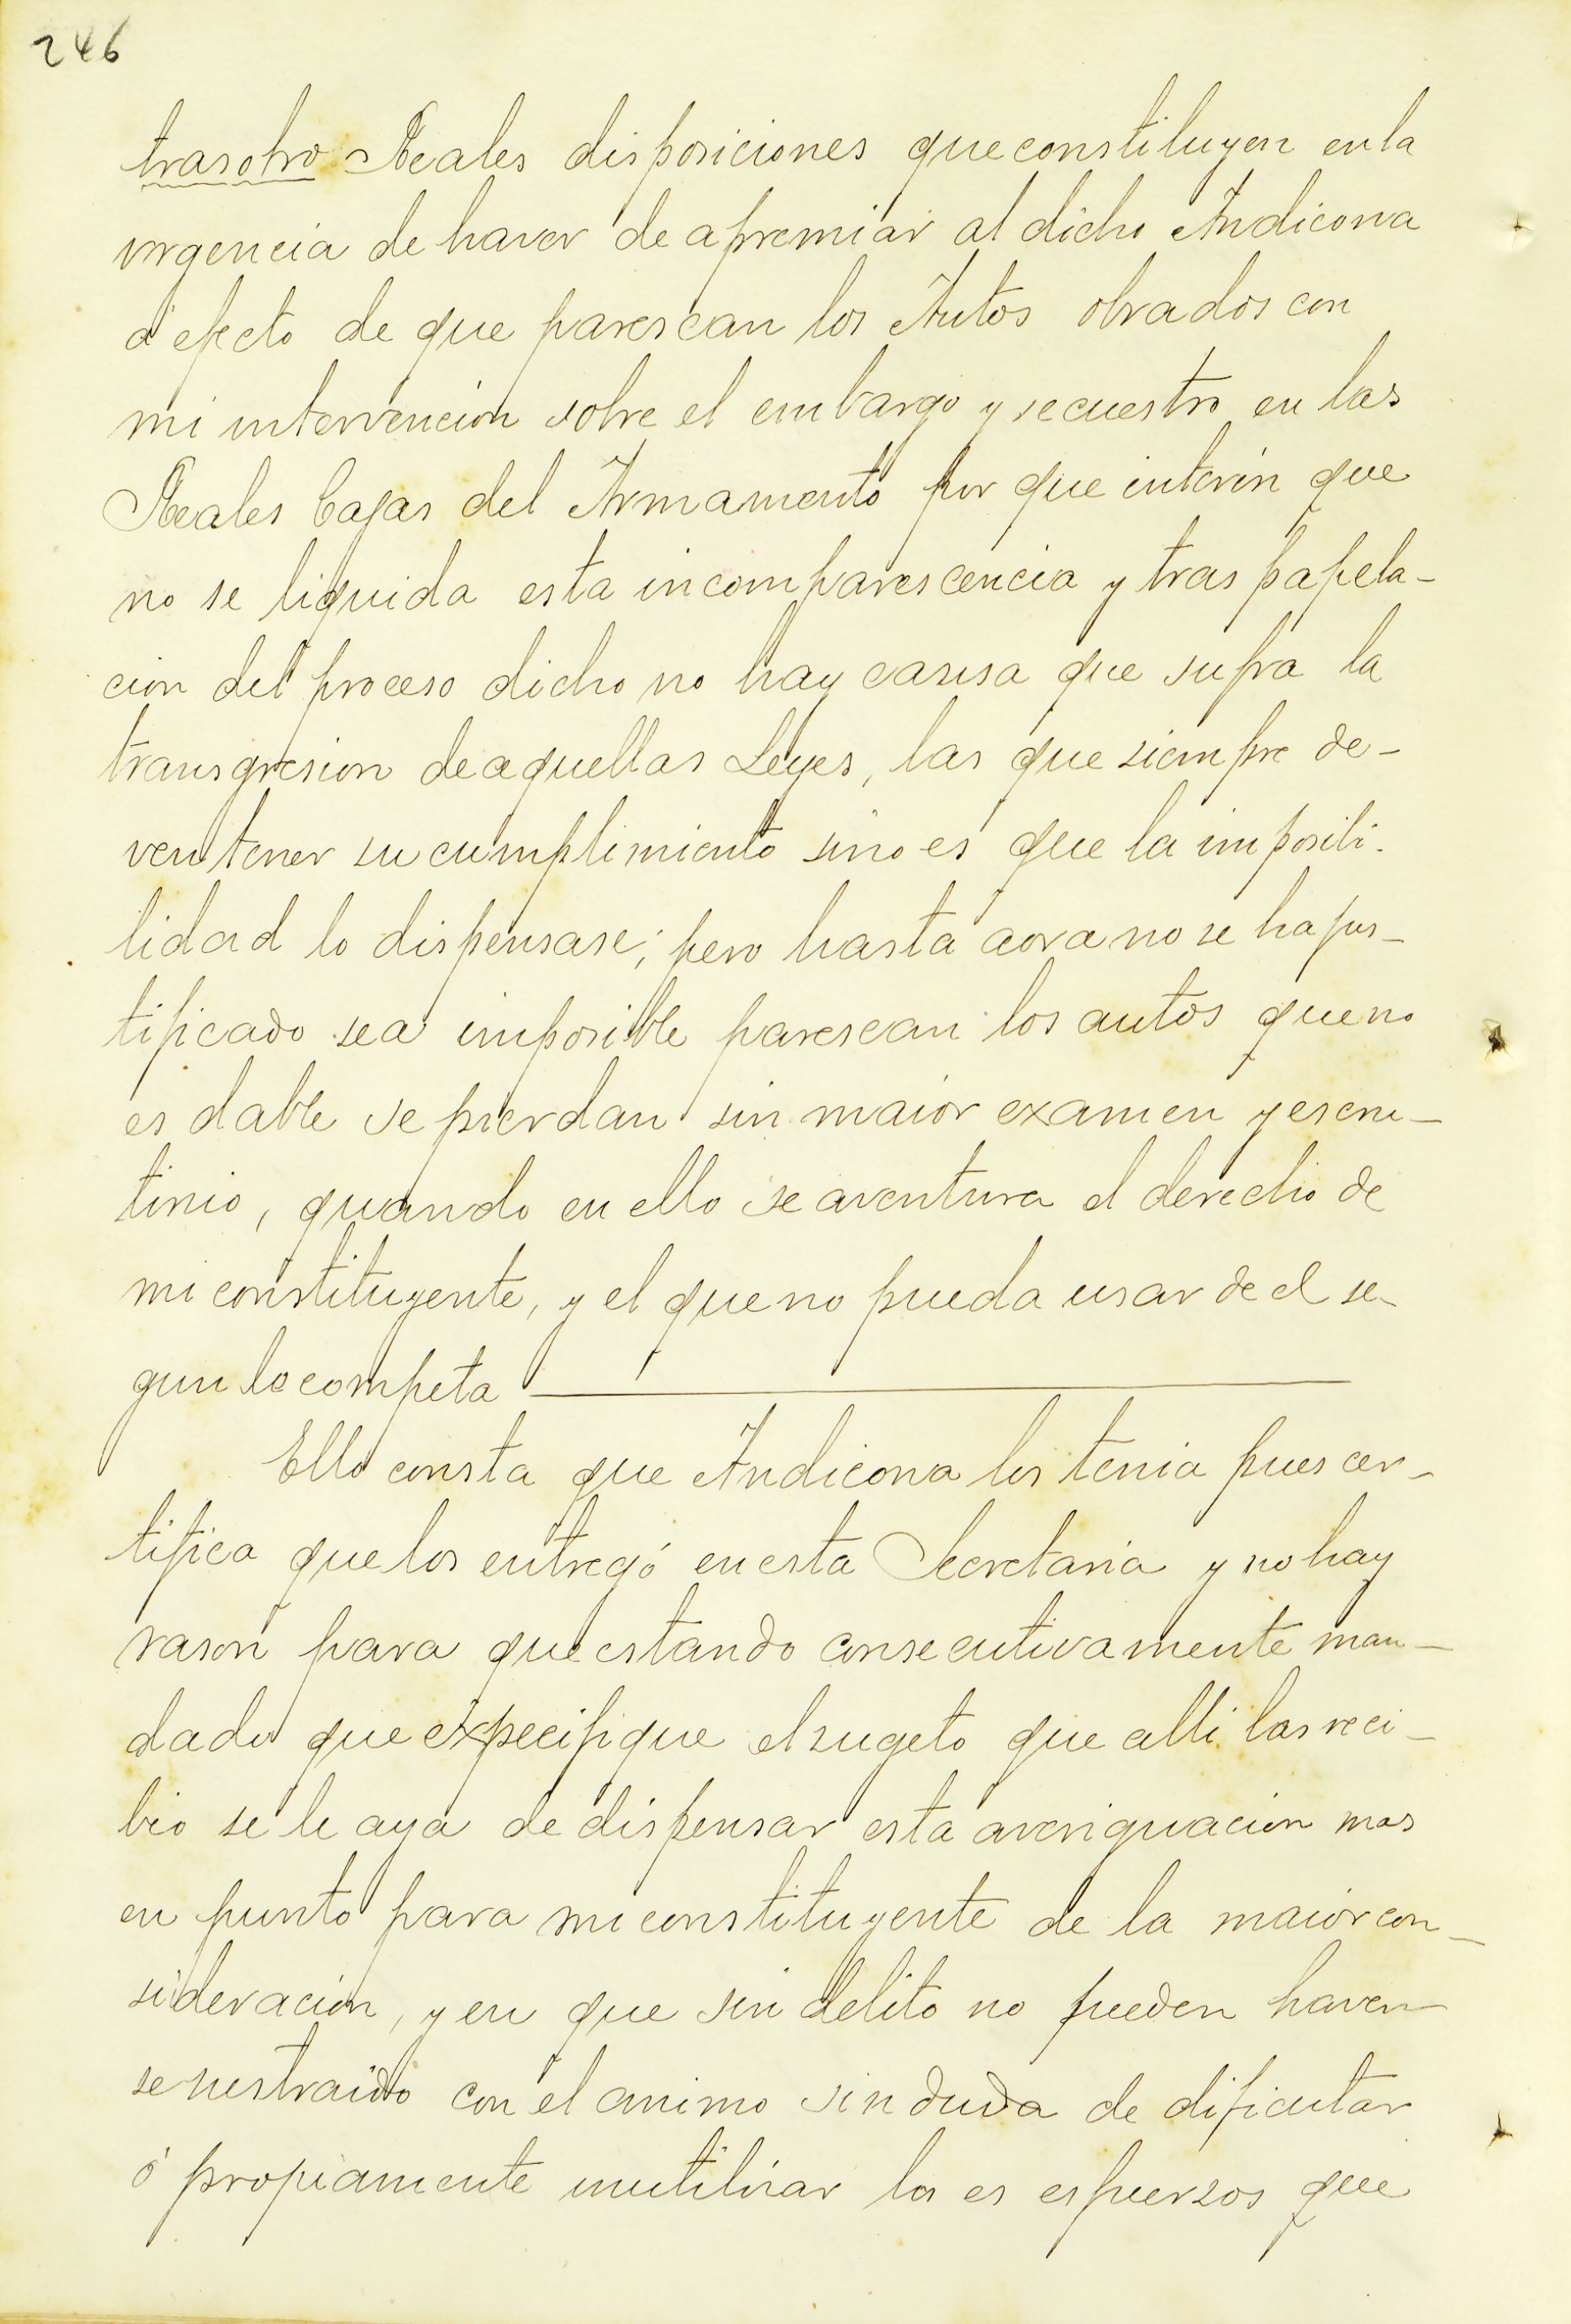 246
trasotro Reales disposiciones que constituyen en la
urgencia de haver de apremiar al dicho Andicona
á efecto de que parescan los Autos obrados con
mi intervencion sobre el embargo y secuestro en las
Reales Cajas del Armamento por que interin que
no se liquida esta incomparescencia y tras papela-
cion del proceso dicho no hay causa que supra la
transgresion de aquellas Leyes, las que siempre de-
ven tener su cumplimiento sino es que la imposibi-
lidad lo dispensase; pero hasta aora no se ha jus-
tificado sea imposible parescan los autos que no
es dable se pierdan sin maior examen y escru-
tinio, quando en ello se aventura el derecho de
mi constituyente, y el que no pueda usar de el se-
gun le competa
Ello consta que Andicona los tenia pues cer-
tifica que los entregó en esta Secretaria y no hay
rason para que estando consecutivamente man-
dado que expecifique el sugeto que alli las reci-
bio se le aya de dispensar esta averiguacion mas
en punto para mi constituyente de la maior con-
sideracion, y en que sin delito no pueden haver-
se sustraido con el animo sin duda de dificultar
ó propiamente inutilisar los es espuersos que